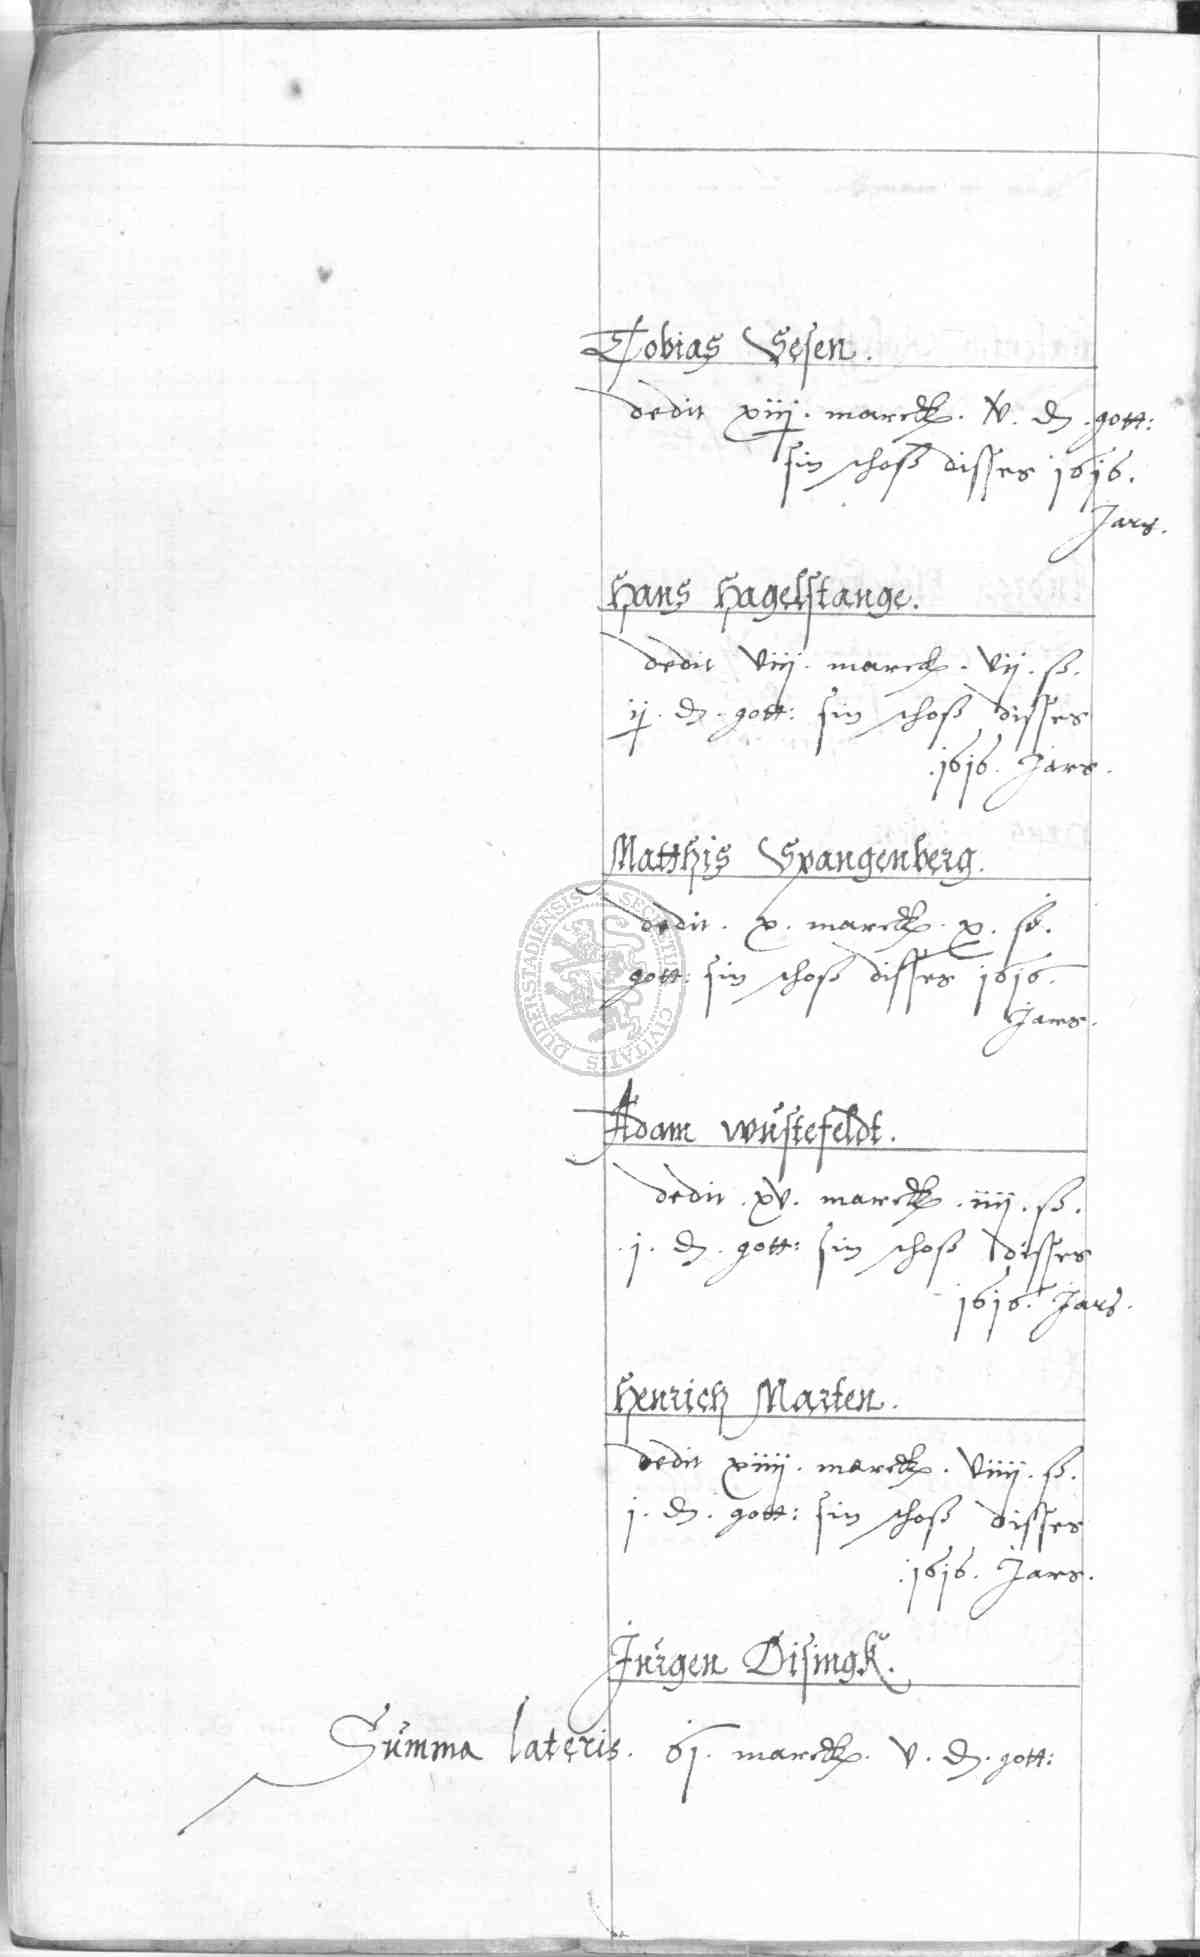 Tobias Sesen.
dedit xiij. marck. v. d. gott:
sin schoß disses 1616.
Jars.
Hans Hagelstange.
dedit viij. marck. vij. ß.
ij. d. gott: sin schoß disses
.1616. Jars.
Matthis Spangenberg.
dedit. x. marck. x. ß.
gott: sin schoß disses 1616.
Jars.
Adam wüstefeldt.
dedit. xv. marck. iiij. ß.
.j. d. gott: sin schoß disses
1616. Jars.
Henrich Marten.
dedit xiiij. marck. viiij. ß.
j. d. gott: sin schoß disses
.1616. Jars.
Jürgen Disingk.
Summa lateris. 61. marck. v. d. gott:
SECRETUM CIVITATIS DUDERSTADIENSIS